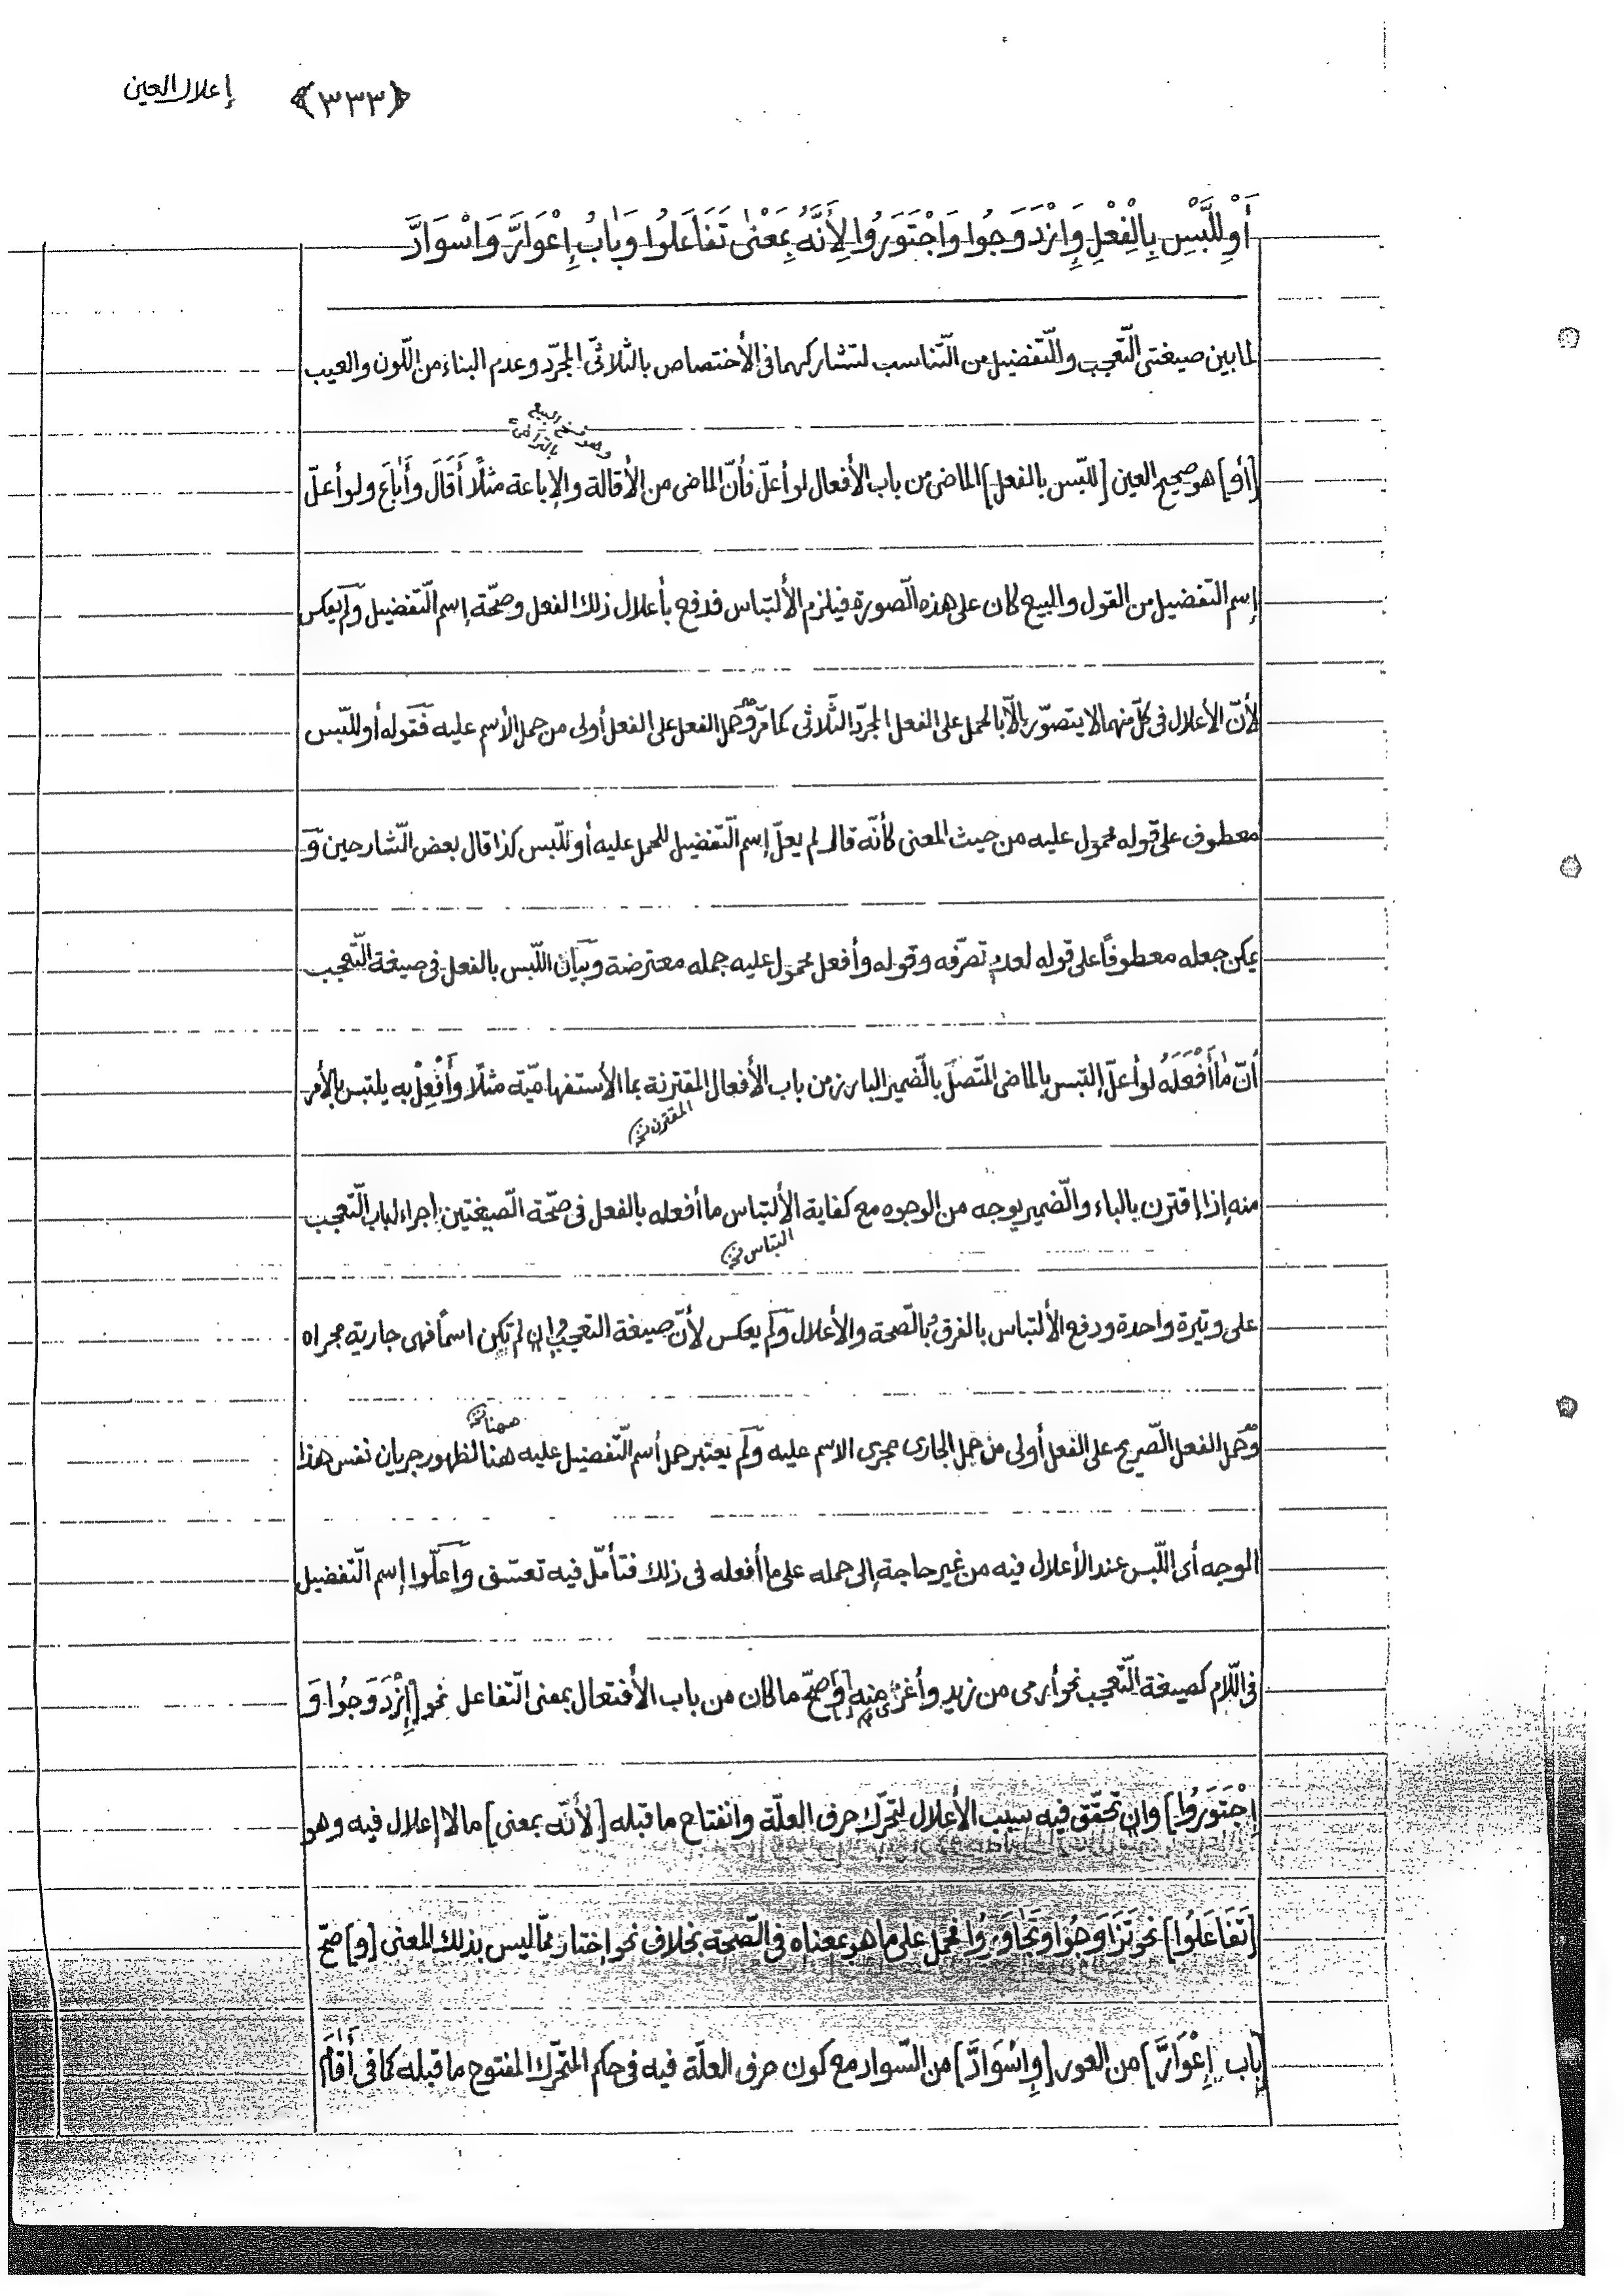 إعلال العين ﴿٣٣٣﴾
أَوْ لِلَّبْسِ بِالْفِعْلِ وَازْدَوَجُوا وَاجْتَوَرُوا لِأَنَّهُ بِمَعْنَىٰ تَفَاعَلُوا وَبَابُ إِعْوَارَّ وَاسْوَادَّ
لما بين صيغتى التّعجب والتّفضيل من التّناسب لتشاركهما فى الأختصاص بالثلاثىّ المجرّد وعدم البناء من اللّون والعيب
وهو فسخ البيع بالتراضى
[أو] هو صحيح العين [للّبس بالفعل] الماضى من باب الأفعال لو أعلّ فأنّ الماضى من الأقالة والإباعة مثلًا أَقَالَ وأَبَاعَ ولو أعلّ
إسم التّفضيل من القول والبيع كان على هذه الصّورة فيلزم الألتباس فدفع بأعلال ذلك الفعل وصحّة إسم التّفضيل ولم يعكس
لأنّ الأعلال فى كلّ منهما لا يتصوّر إلّا بالحمل على الفعل المجرّد الثّلاثى كما مرّ وحمل الفعل على الفعل أولى من حمل الأسم عليه فقوله أو للّبس
معطوف على قوله محمول عليه من حيث المعنى كأنّه قال لم يعلّ إسم التّفضيل للحمل عليه أو للّبس كذا قال بعض الشّارحين و
يمكن جعله معطوفًا على قوله لعدم تصرّفه وقوله وأفعل محمول عليه جمله معترضة وبيان اللّبس بالفعل فى صيغة التّعجب
أنّ مَا أَفْعَلَهُ لو أعلّ إلتبس بالماضى المتّصل بالضّمير البارز من باب الأفعال المقترنة بما الأستفهاميّة مثلًا وأَفْعِلْ به يلتبس بالأمر
المقترن نخ
منه إذا إقترن بالباء والضّمير بوجه من الوجوه مع كفاية الألتباس ما أفعله بالفعل فى صحّة الصّيغتين إجراء لباب التّعجب
التباس نخ
على وتيرة واحدة ودفع الألتباس بالفرق بالصّحة والأعلال ولم يعكس لأنّ صيغة التعجب وإن لم تكن اسمًا فهى جارية مجراه
ههنا نخ
وحمل الفعل الصّريح على الفعل أولى من حمل الجارى مجرى الاسم عليه ولم يعتبر حمل أسم التّفضيل عليه هنا لظهور جريان نفس هذا
الوجه أى اللّبس عند الأعلال فيه من غير حاجة إلى حمله على ما أفعله فى ذلك فتأمّل فيه تعسّف وأعلّوا إسم التّفضيل
فى اللّام كصيغة التّعجب نحو أرمى من زيد وأغزى منه [و] صحّ ما كان من باب الأفتعال بمعنى التّفاعل نحو [إِزْدَوَجُوا وَ
إِجْتَوَرُوا] وإن تحقّق فيه سبب الأعلال لتحرّك حرف العلّة وانفتاح ما قبله [لأنّه بمعنى] ما لا إعلال فيه وهو
[تَفَاعَلُوا] نحو تَزَاوَجُوا وتَجَاوَرُوا فحمل على ما هو بمعناه فى الصّحة بخلاف نحو إختار ممّا ليس بذلك المعنى [و] صحّ
[باب إِعْوَارَّ] من العور [وإِسْوَادَّ] من السّواد مع كون حرف العلّة فيه فى حكم المتحرّك المفتوح ما قبله كما فى أَقَامَ